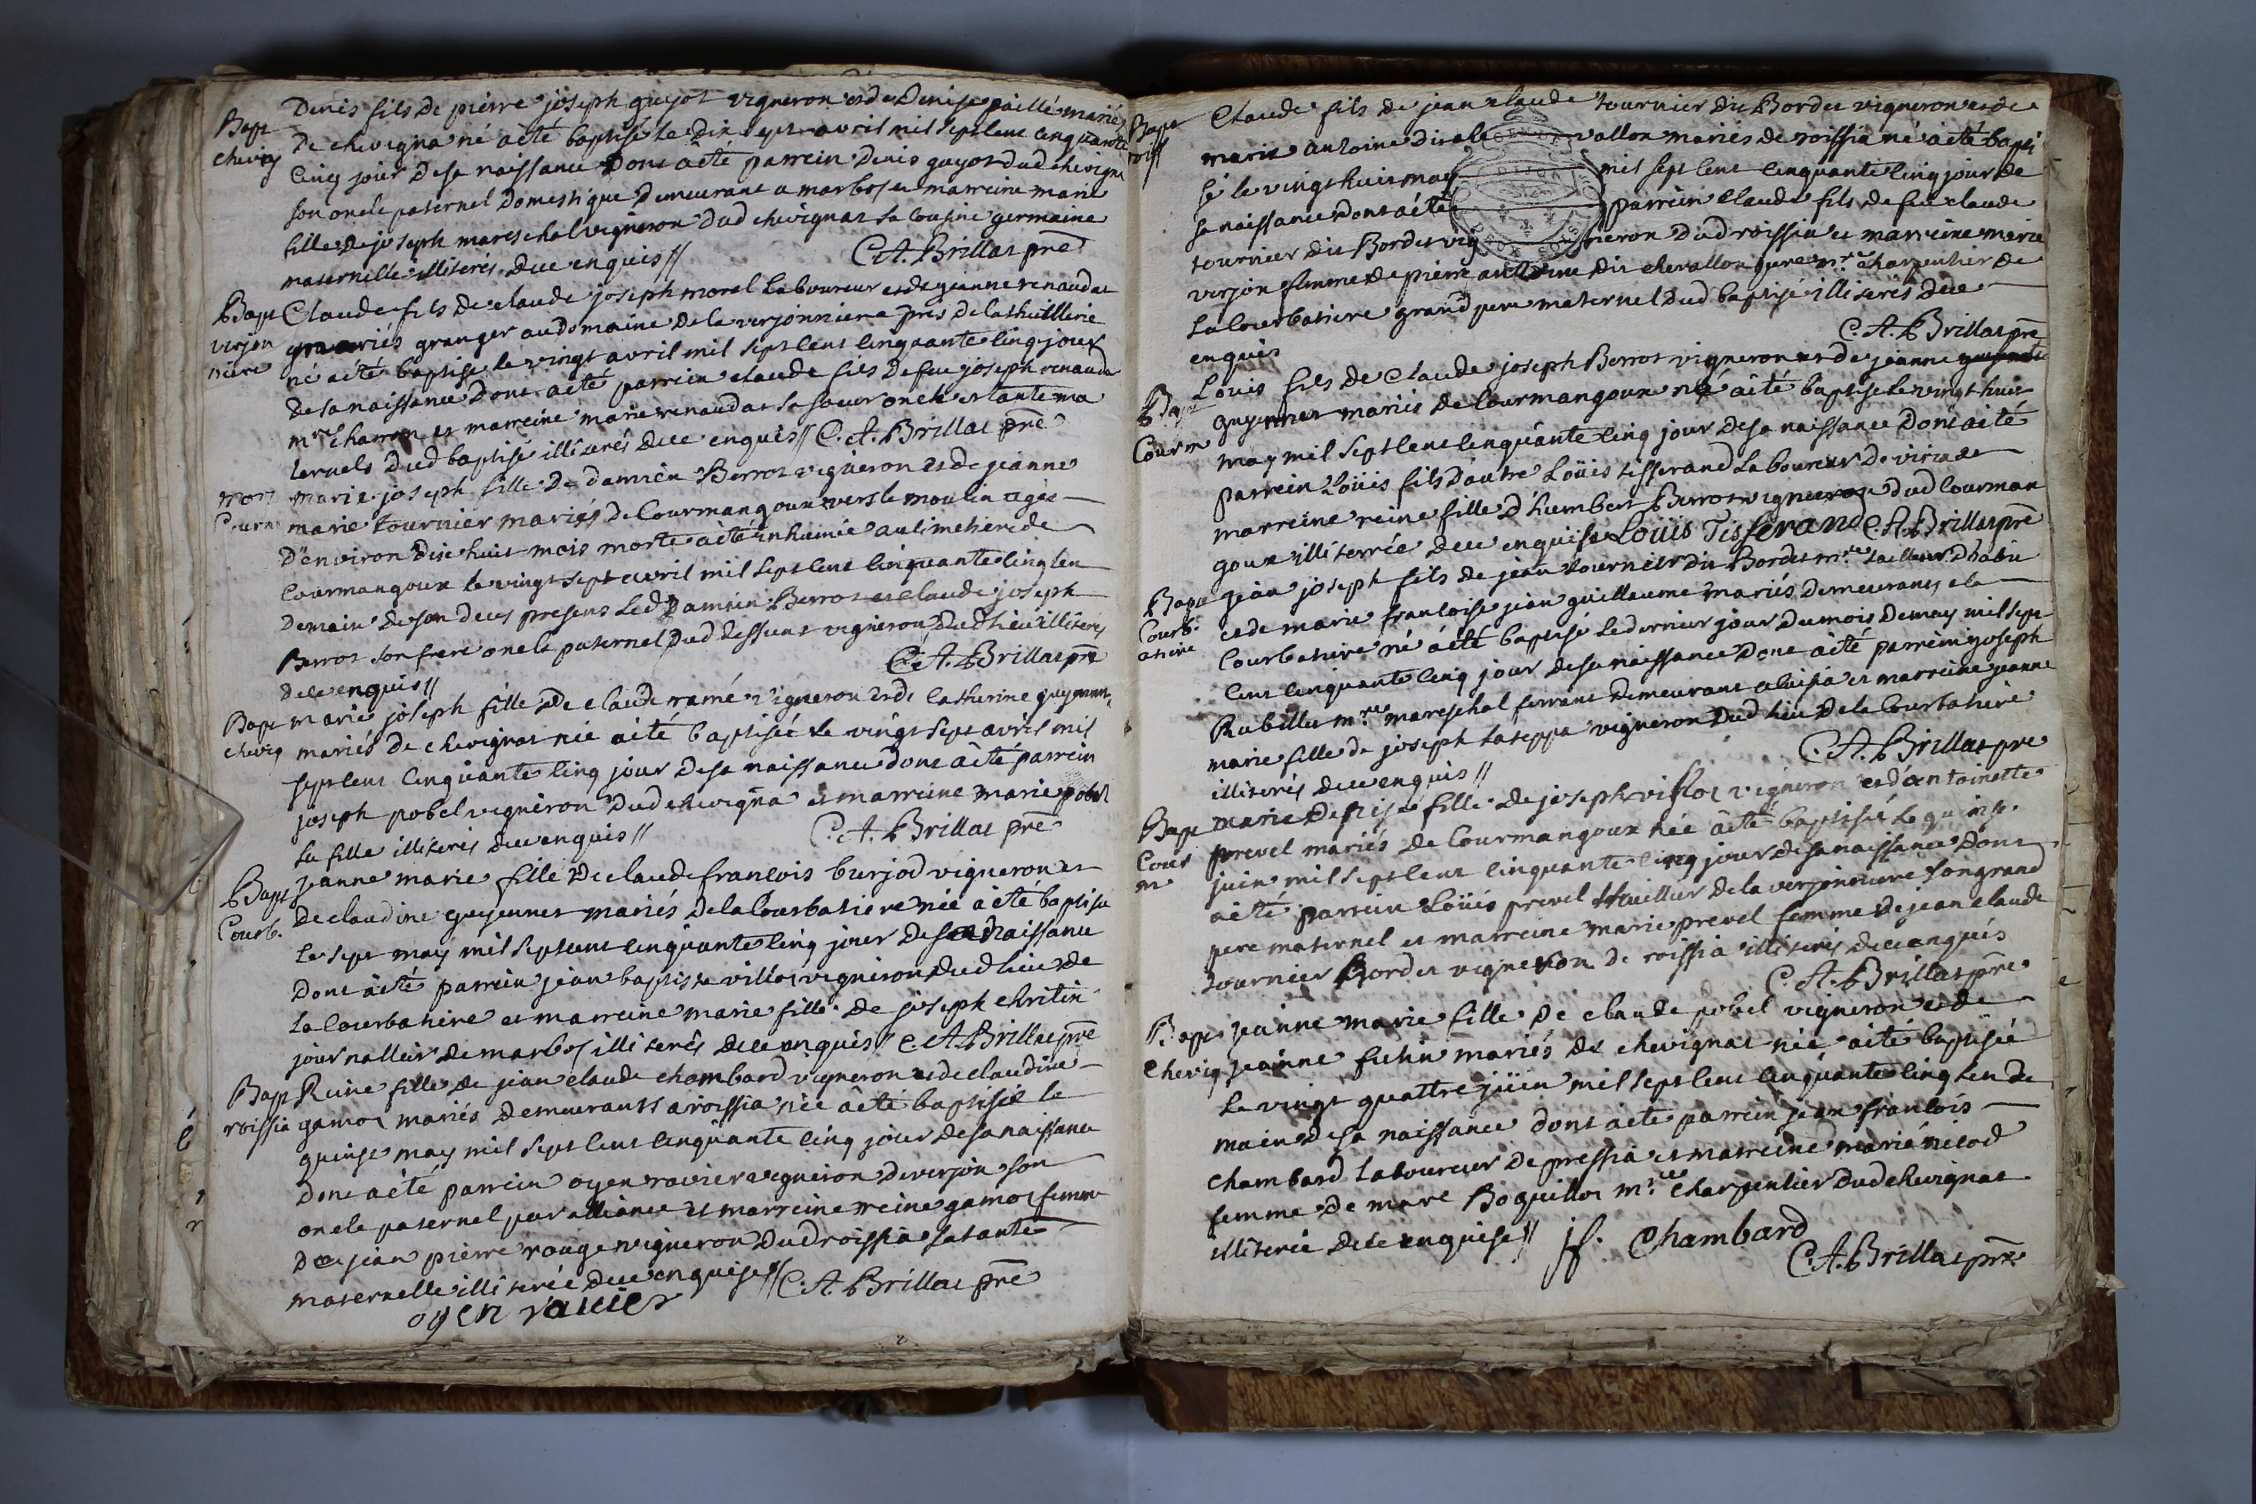 Bapt
chevig
Denis fils de pierre joseph guyot vigneron et de Denise paillé mariés
de chevigna né a èté baptisé le dix sept avril mil sept cent cinquante
cinq jour de sa naissance dont a èté parrein denis guyot dud chevigna
son oncle paternel domestique demeurant a marbos et marreine marie
fille de joseph mareschal vigneron dud chevignat sa cousine germaine
maternelle illiterés de ce enquis //
C. A. Brillat pre
Bapt
virjon
niere
Claude fils de claude joseph morel laboureur et de jeanne renaudat
mariés granger au domaine de la verjonniere pres de la thuillerie
né a èté baptisé le vingt avril mil sept cent cinquante cinq jour
de sa naissance dont a èté parrein claude fils de feu joseph renaudat
mre charron et marreine marie renaudat sa soeur oncle et tante ma
ternels dud baptisé illiterés de ce enquis // C. A. Brillat pre
mort
Courm
marie joseph fille de damien Berrot vigneron et de jeanne
marie tournier mariés de Courmangoux vers le moulin agée
d'environ dix huit mois morte a èté inhumée au cimetiere de
Courmangoux le vingt sept avril mil sept cent cinquante cinq len
demain de son deces presens led Damien Berrot et claude joseph
Berrot son frere oncle paternel dud dessunt vigneron dud lieu illiterés
de ce enquis //
C. A. Brillat pre
Bapt
chevig
marie joseph fille de claude ramé vigneron et de catherine guyennet
mariés de chevignat née a èté baptisée le vingt sept avril mil
sept cent cinquante cinq jour de sa naissance dont a èté parrein
joseph pobel vigneron dud chevigna et marreine marie pobel
sa fille illiterés de ce enquis //
C. A. Brillat pre
Bapt
Courb.
jeanne marie fille de claude francois burjod vigneron et
de claudine guyennet mariés de la Courbatiere née a èté baptisée
le sept may mil sept cent cinquante cinq jour de sa naissance
dont a èté parrein jean baptiste villot vigneron dud lieu de
la Courbatiere et marreine marie fille de joseph chritin
journallier de marbos illiterés de ce enquis C. A. Brillat pre
Bapt
roissia
Reine fille de jean claude chambard vigneron et de claudine
gamot mariés demeurants a roissia née a èté baptisée le
quinze may mil sept cent cinquante cinq jour de sa naissance
dont a èté parrein oyen ravier vigneron de verjon son
oncle paternel par alliance et marreine reine gamot femme
de jean pierre rouge vigneron dud roissia sa tante
maternelle illiterée de ce enquise // C. A. Brillat pre
oyen ravier
Bapt
roiss
Claude fils de jean claude tournier dit Bordet vigneron et de
marie antoine dit che vallon mariés de roissia né a èté bapti
sé le vingt huit may mil sept cent cinquante cinq jour de
sa naissance dont a èté parrein claude fils de feu claude
tournier dit Bordet vigneron dud roissia et marreine marie
verjon femme de pierre antoine dit chevallon mre charpentier de
la Courbatiere grand pere maternel dud baptisé illiterés de ce
enquis
C. A. Brillat pre
Bapt
Courm
Louis fils de Claude joseph Berrot vigneron et de jeanne
guyennet mariés de Courmangoux né a èté baptisé le vingt huit
may mil sept cent cinquante cinq jour de sa naissance dont a èté
parrein Loüis fils d'autre Loüis tisserand laboureur de viria et
marreine reine fille d'humbert Berrot vigneron dud Courman
goux illiterrée de ce enquise Loüis Tisserand C. A. Brillat pre
Bapt
Courb.
atiere
jean joseph fils de jean tournier dit Bordet mre tailleur d'habit
et de marie francoise jean guillaume mariés demeurans a la
Courbatiere né a èté baptisé le dernier jour du mois de may mil sept
cent cinquante cinq jour de sa naissance dont a èté parrein joseph
Rubillet mre mareschal ferrant demeurant a loisia et marreine jeanne
marie fille de joseph lateppe vigneron dud lieu de la Courbatiere
illiterés de ce enquis //
C. A. Brillat pre
Bapt
Cour
m
marie denise fille de joseph villot vigneron et d'antoinette
prevel mariés de Courmangoux née a èté baptisée le quinze
juin mil sept cent cinquante cinq jour de sa naissance dont
a èté parrein Loüis prevel thuillier de la verjonniere son grand
pere maternel et marreine marie prevel femme de jean claude
tournier Bordet vigneron de roissia illiterés de ce enquis
C. A. Brillat pre
Bapt
chevig
jeanne marie fille de claude pobel vigneron et de
jeanne mariés de chevignat née a èté baptisée
le vingt quattre juin mil sept cent cinquante cinq len de
main de sa naissance dont a èté parrein jean francois
chambard laboureur de pressia et marreine marie nicod
femme de marc Boquillot mre charpentier dud chevignat
illiterée de ce enquise // jf. Chambard
C. A. Brillat pre